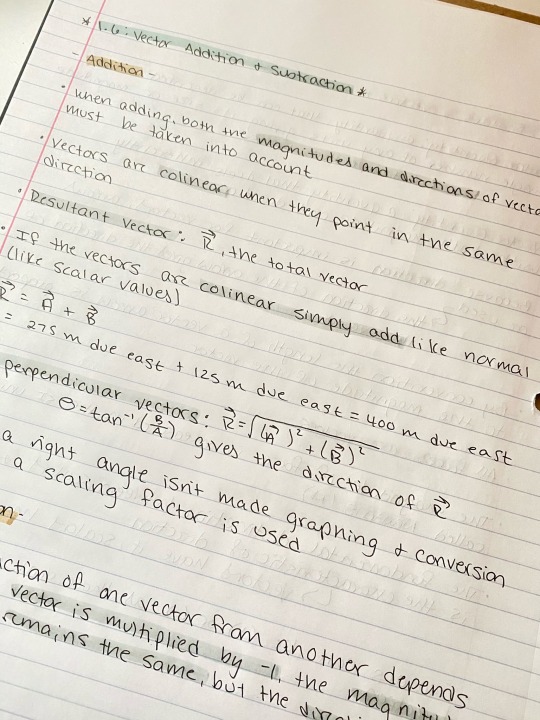 * 1.6: Vector Addition & Subtraction *
- Addition -
• when adding, both the magnitudes and directions of vecto
must be taken into account
• vectors are colinear when they point in the same
direction
• Resultant Vector: R⃗, the total vector
• If the vectors are colinear simply add like normal
(like scalar values)
R⃗ = A⃗ + B⃗
= 275 m due east + 125 m due east = 400 m due east
perpendicular vectors: R⃗ = √(A⃗)² + (B⃗)²
θ = tan⁻¹ (B/A) gives the direction of R⃗
a right angle isn't made graphing & conversion
a scaling factor is used
on -
action of one vector from another depends
vector is multiplied by -1, the magnitu
remains the same, but the dire